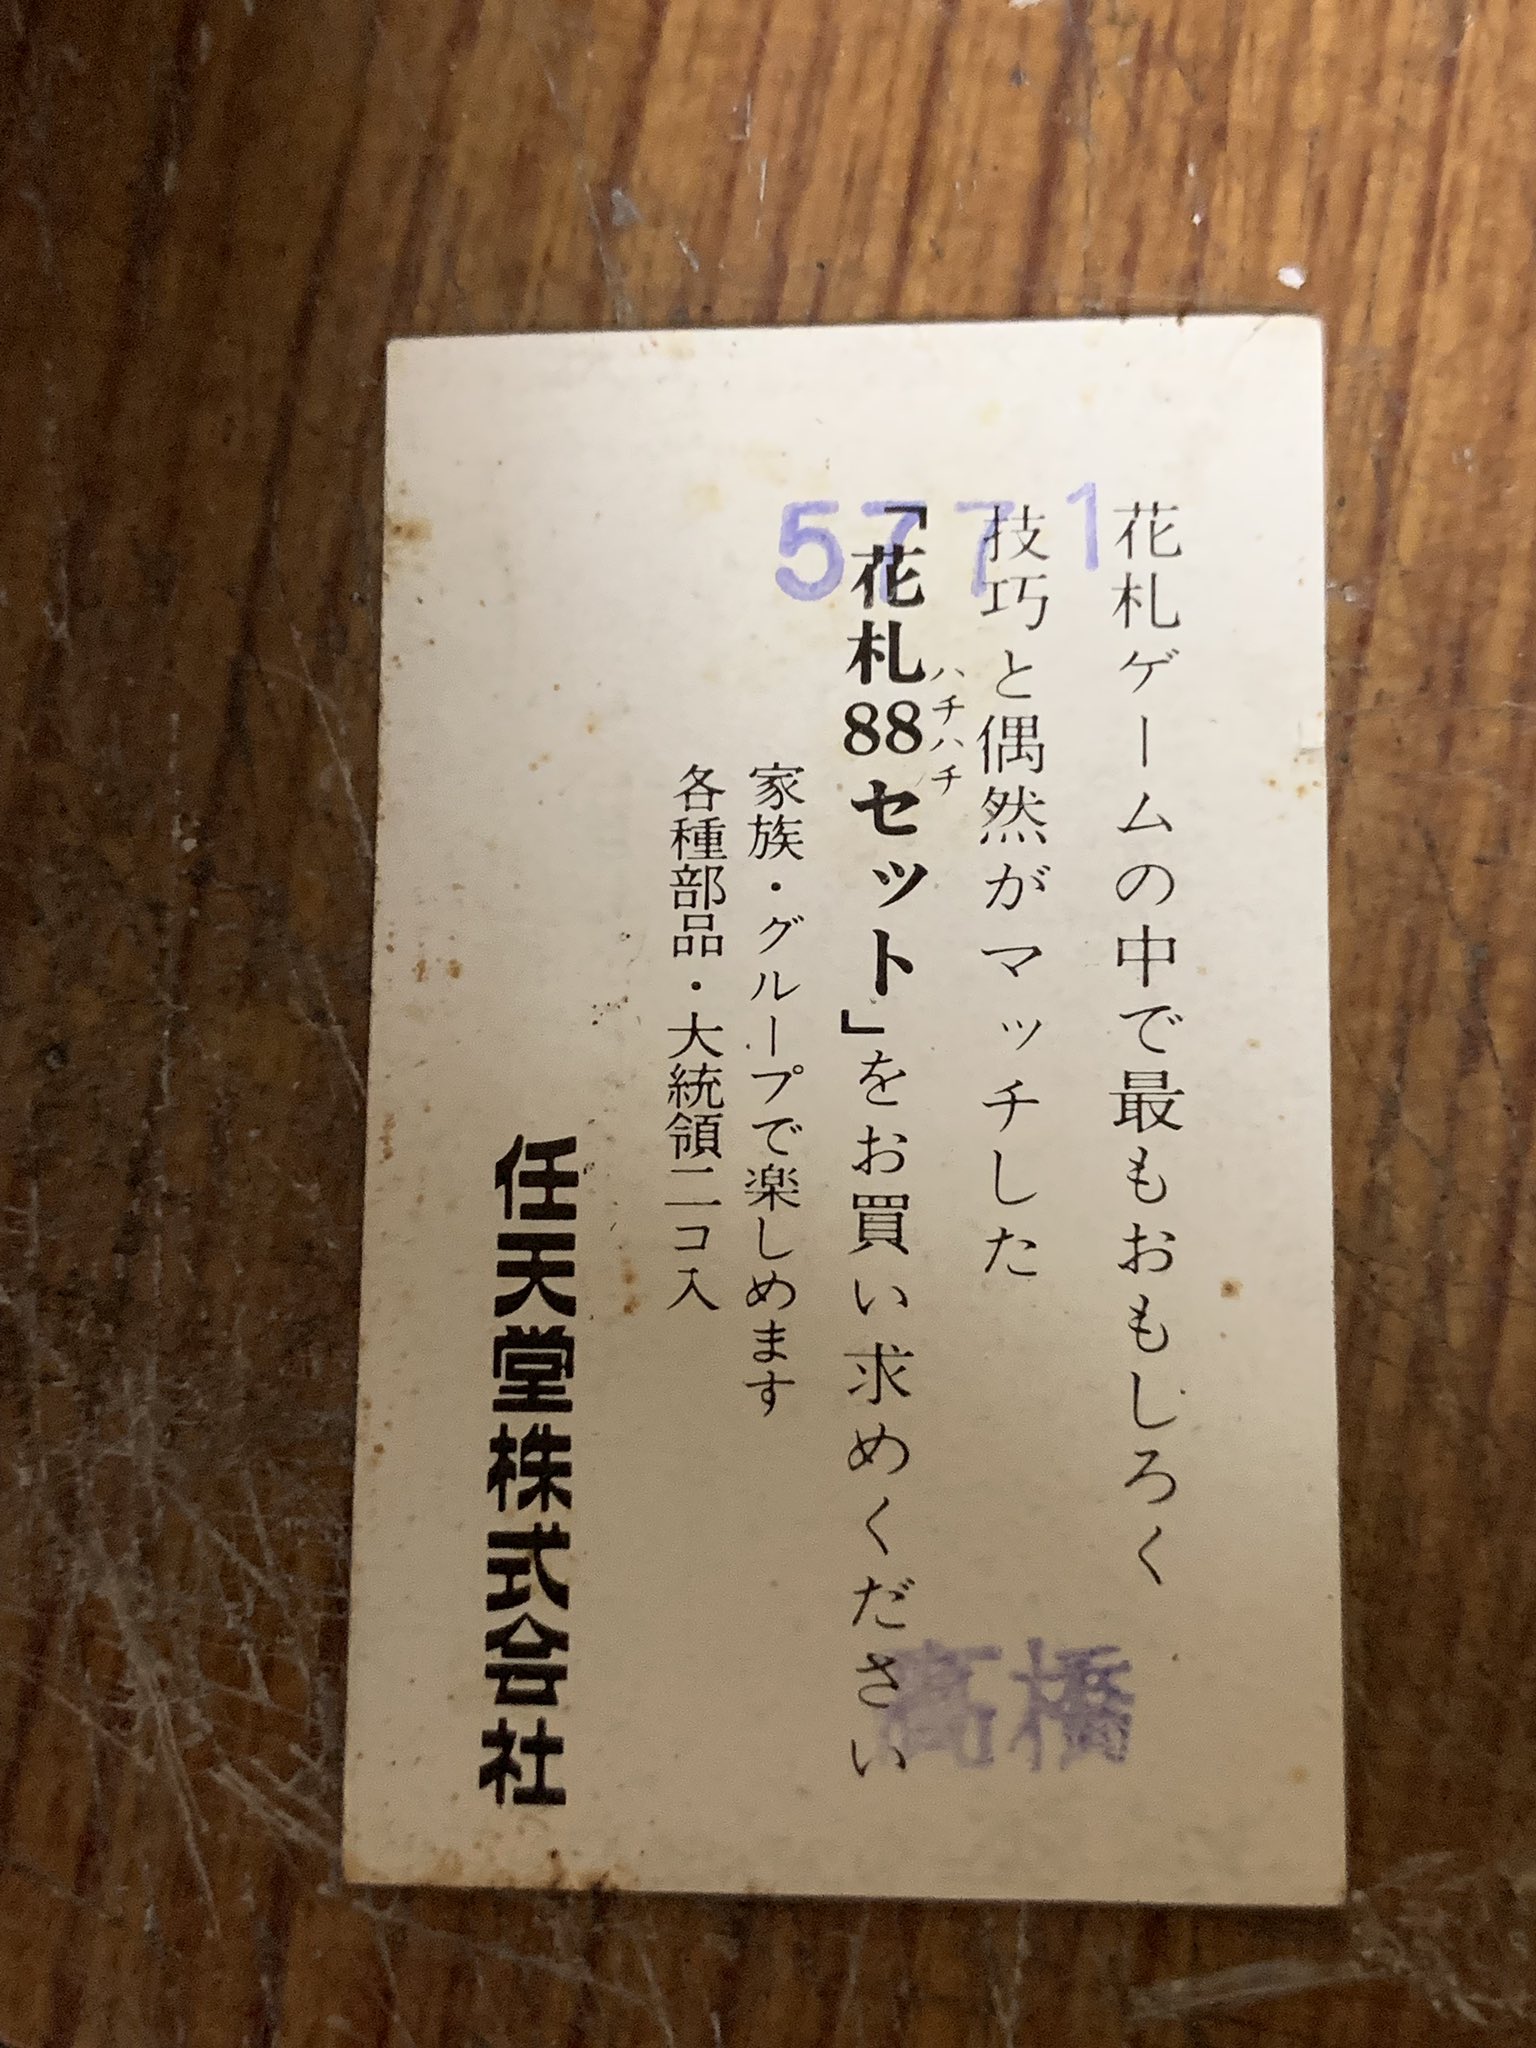 花札ゲームの中で最もおもしろく
技巧と偶然がマッチした
「花札88セット」をお買い求めください
ハチハチ
家族・グループで楽しめます
各種部品・大統領二コ入
任天堂株式会社
5771
高橋